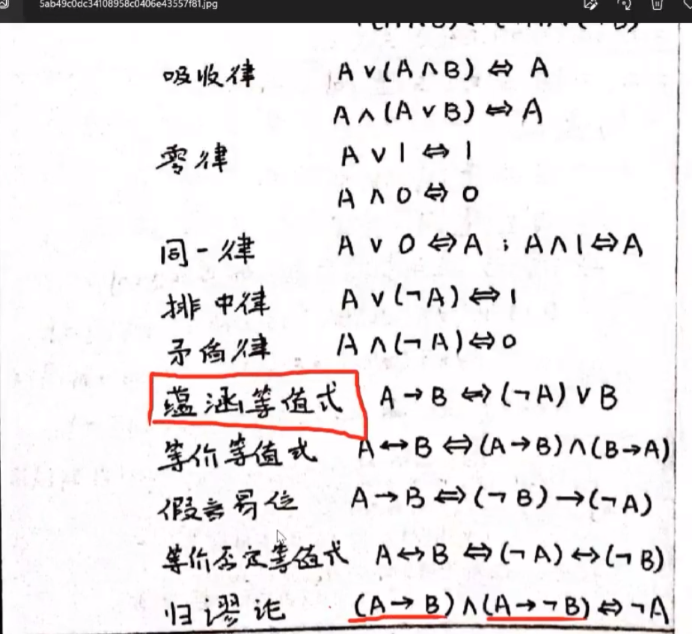 5ab49c0dc34108958c0406e43557f81.jpg
吸收律 A∨(A∧B)⇔A
A∧(A∨B)⇔A
零律 A∨1⇔1
A∧0⇔0
同一律 A∨0⇔A；A∧1⇔A
排中律 A∨(¬A)⇔1
矛盾律 A∧(¬A)⇔0
蕴涵等值式 A→B⇔(¬A)∨B
等价等值式 A↔B⇔(A→B)∧(B→A)
假言易位 A→B⇔(¬B)→(¬A)
等价否定等值式 A↔B⇔(¬A)↔(¬B)
归谬论 (A→B)∧(A→¬B)⇔¬A